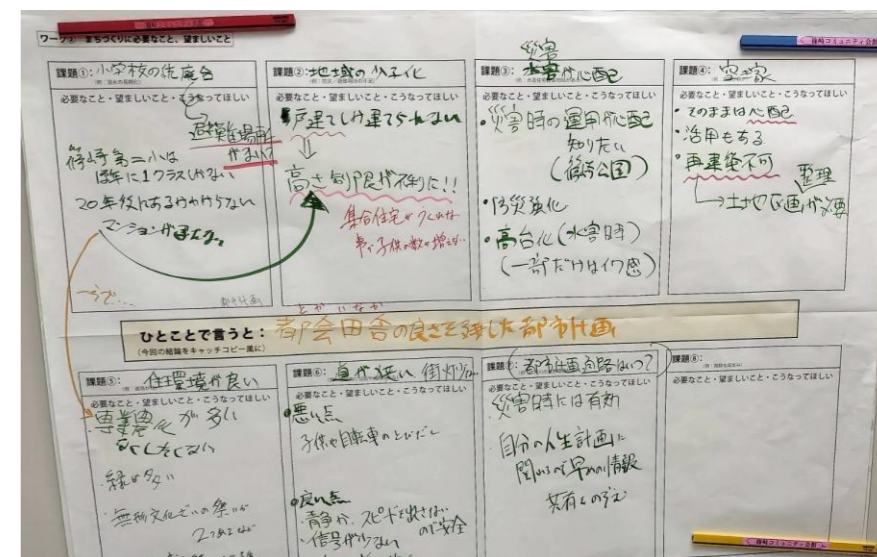 ワーク② まちづくりに必要なこと、望ましいこと
課題①: 小学校の統廃合
必要なこと・望ましいこと・こうなってほしい
避難場所
がない?
篠崎第二小は
1クラスしかない
20年後にあるかわからない
マンションが
一方で…
課題②: 地域の少子化
必要なこと・望ましいこと・こうなってほしい
戸建てしか建てられない
高さ制限が不利に!!
集合住宅が
子供の数が増えない
課題③: 水害が心配
災害
必要なこと・望ましいこと・こうなってほしい
・災害時の運用が心配
知りたい
(篠崎公園)
・防災強化
・高台化(水害時)
(一部だけはイワ感)
課題④: 空き家
必要なこと・望ましいこと・こうなってほしい
・そのままは心配
・活用もある
・再建築不可
整理
→土地区画が必要
ひとことで言うと:
(今回の結論をキャッチコピー風に)
とかいなか
都会田舎の良さを残した都市計画
課題⑤: 住環境が良い
必要なこと・望ましいこと・こうなってほしい
専業農家が多い
なくしたくない
・緑が多い
・無形文化
課題⑥: 道が狭い 街灯が
必要なこと・望ましいこと・こうなってほしい
●悪い点
子供や自転車のとびだし
●良い点
・静か、スピードを出さない
ので安全
・信号が少ない
課題⑦: 都市計画道路はいつ?
必要なこと・望ましいこと・こうなってほしい
・災害時には有効
・自分の人生計画に
関わるので早めの情報
共有をのぞむ
課題⑧:
必要なこと・望ましいこと・こうなってほしい
篠崎コミュニティ会館